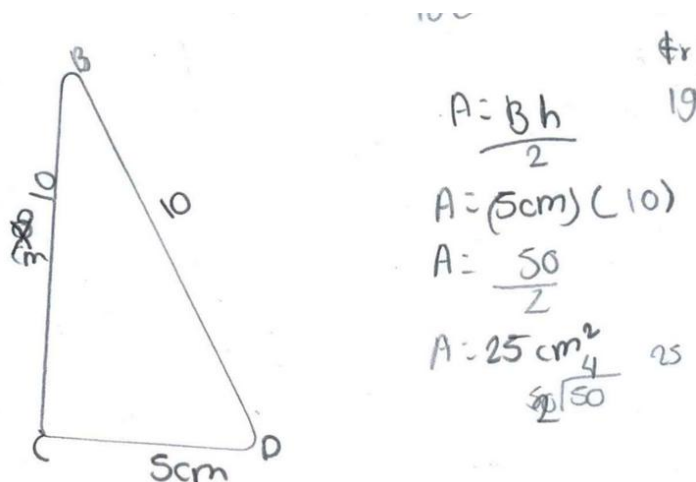 B
10
10
cm
C
D
5cm
A = Bh
2
A = (5cm) (10)
A = 50
2
A = 25 cm²
25
4
50
19